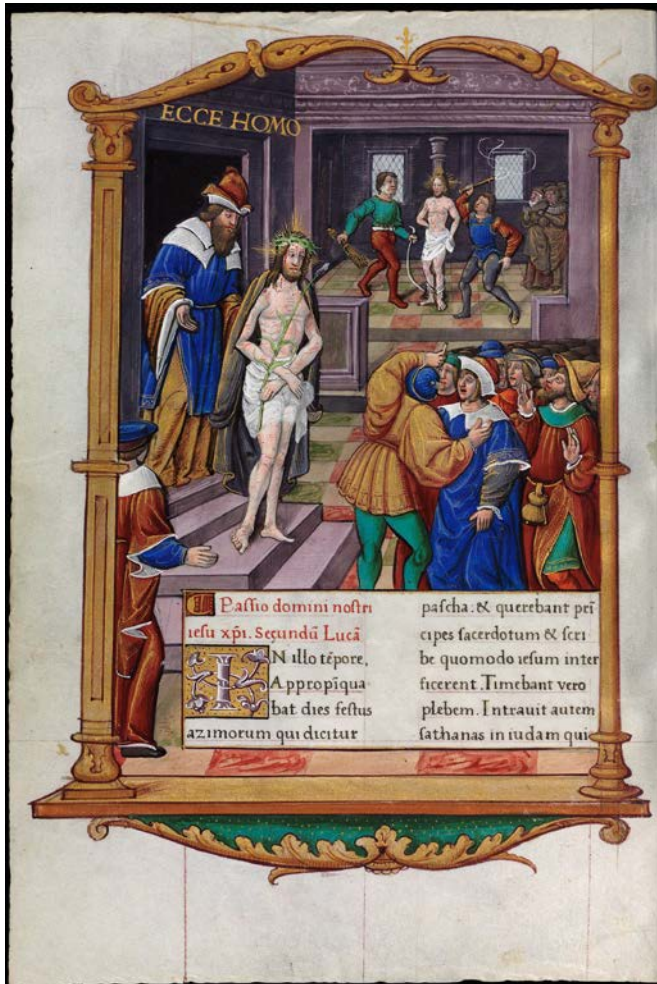 ECCE HOMO
Passio domini nostri
iesu xp̄i. Secundū Lucā
IN illo tēpore,
Appropīqua
bat dies festus
azimorum qui dicitur
pascha. & querebant prī
cipes sacerdotum & scri
be quomodo iesum inter
ficerent. Timebant vero
plebem. Intrauit autem
sathanas in iudam qui